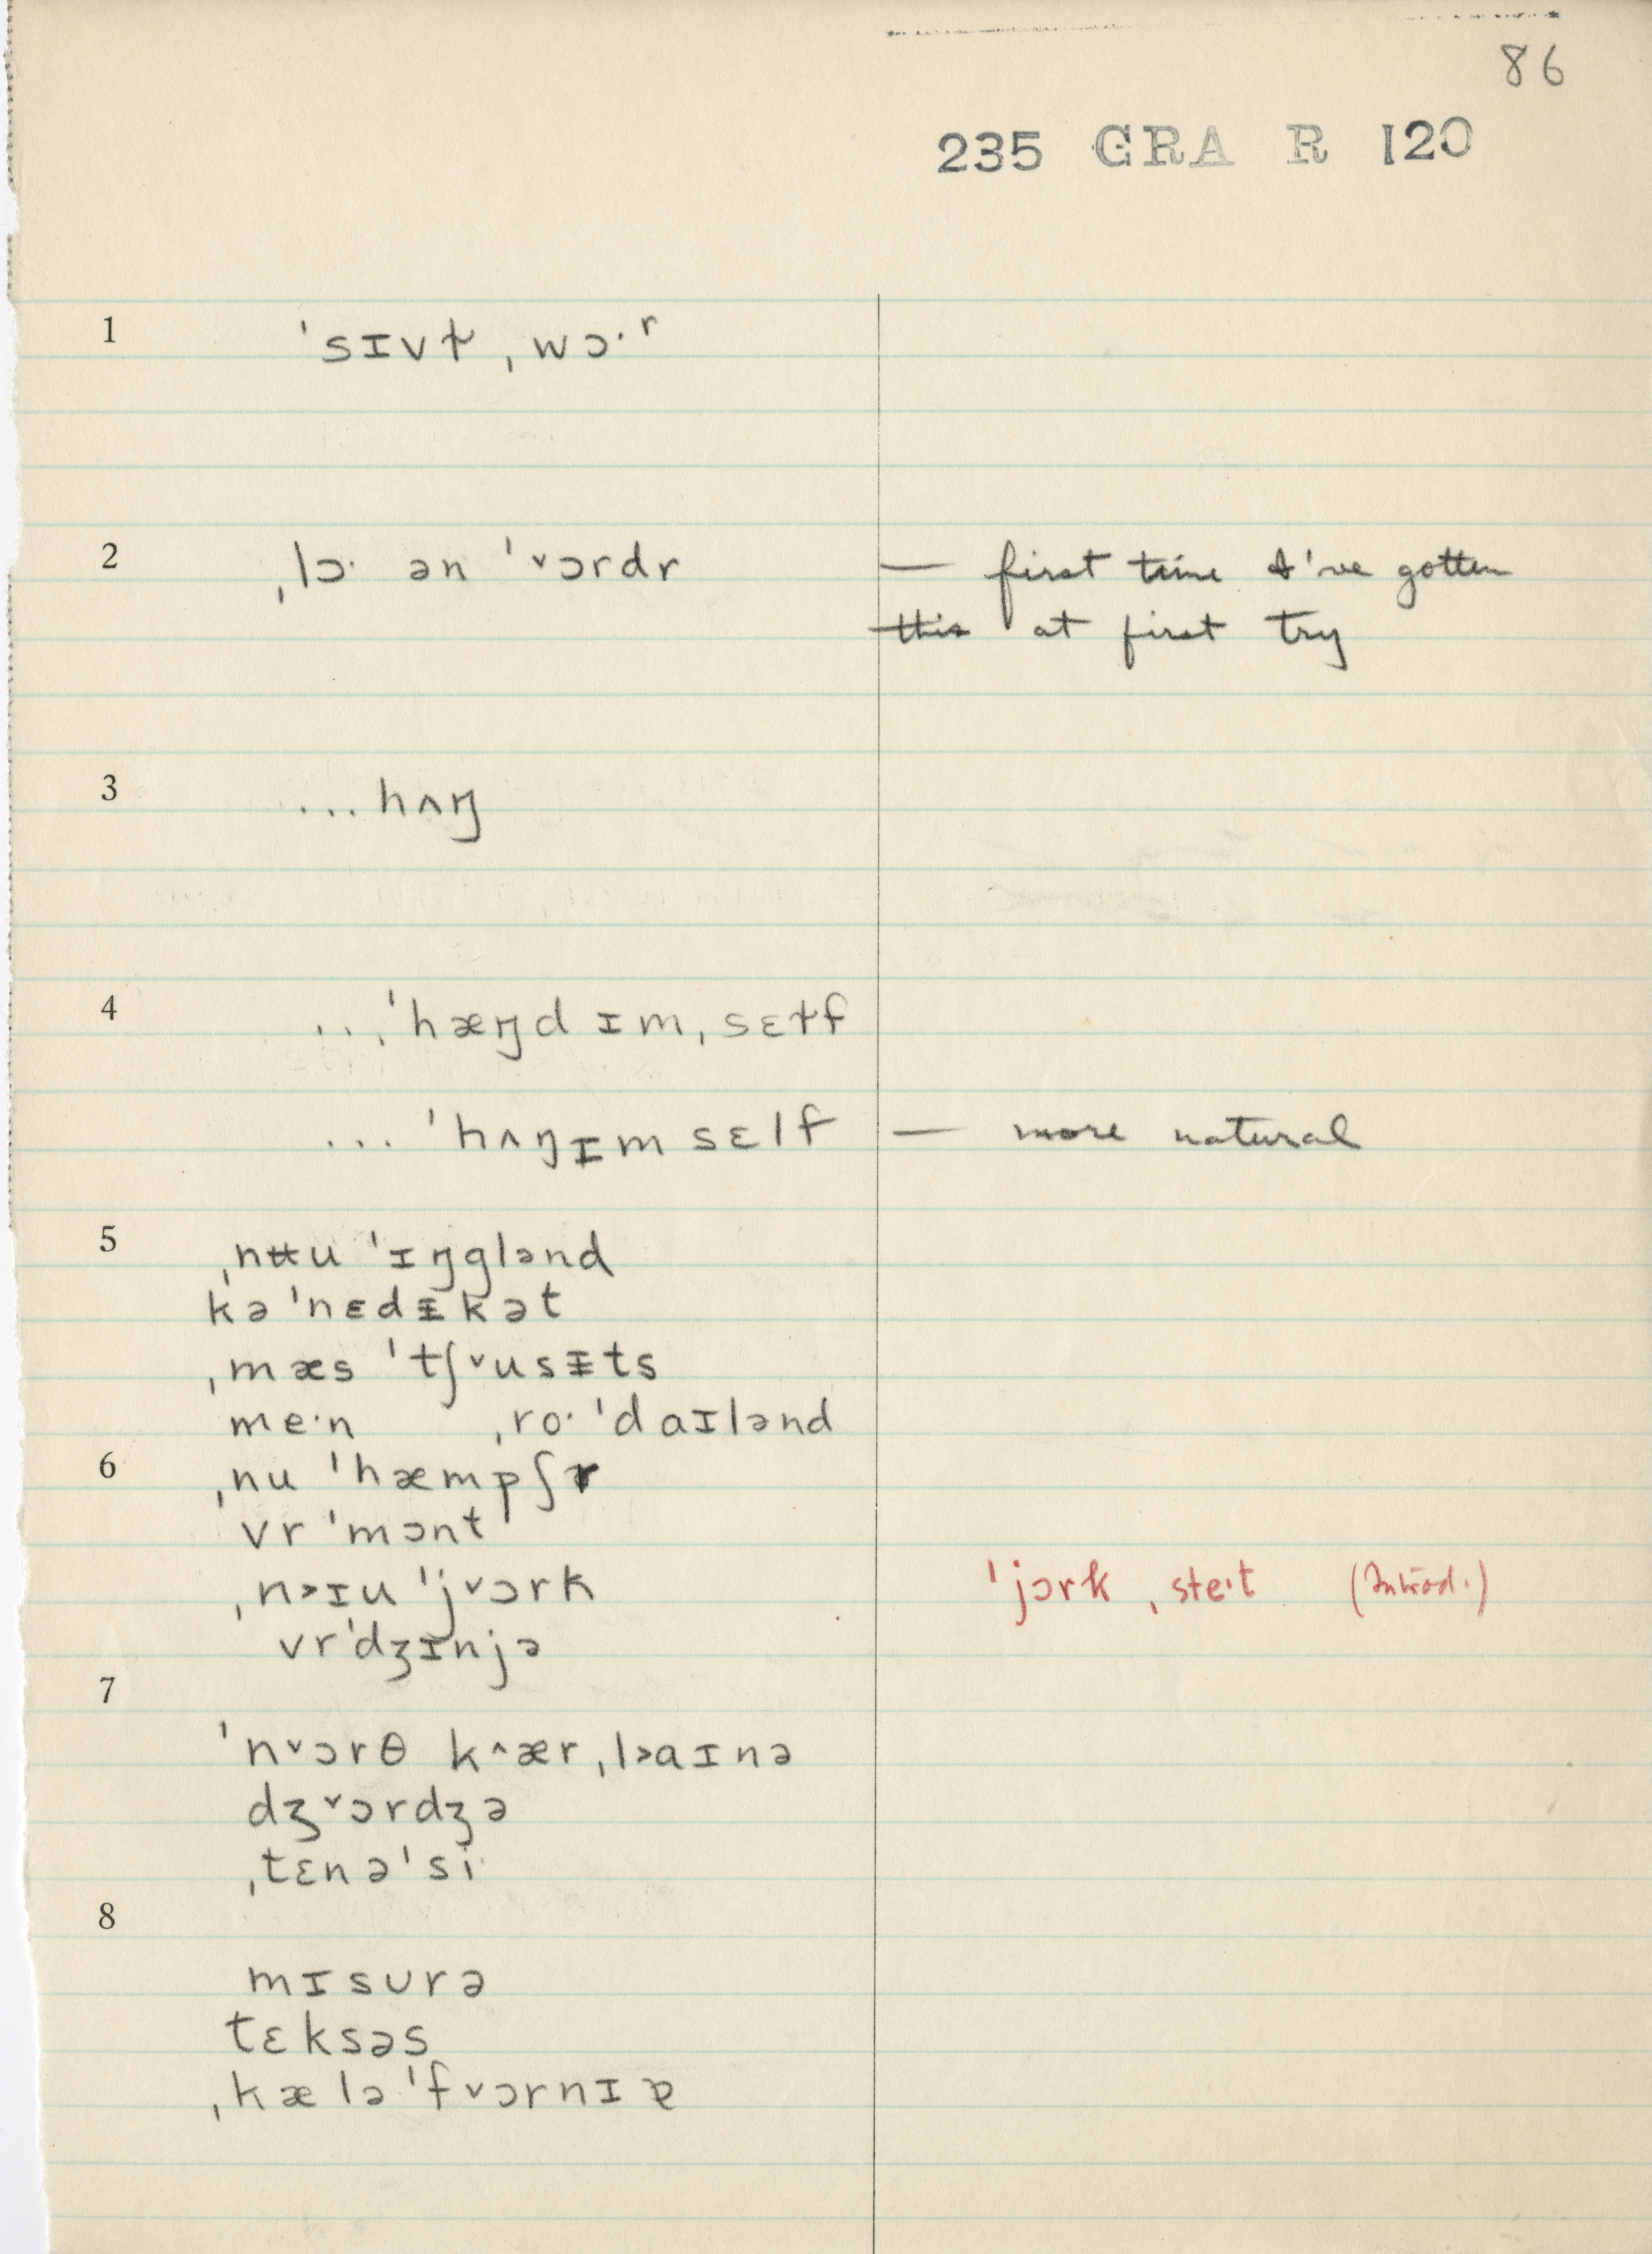 86
235 GRA R 120
1 ˈsɪvɫ ˌwɔ·ʳ
2 ˌlɔ· ən ˈ˅ɔrdr — first time I've gotten
this at first try
3 ...hʌŋ
4 ...ˈhæŋd ɪm ˌsɛɫf
... ˈhʌŋɪm sɛlf — more natural
5 ˌnʉu ˈɪŋglənd
kəˈnɛdᵻkət
ˌmæs ˈtʃ˅usᵻts
me·n ˌro· ˈdaɪlənd
6 ˌnu ˈhæmpʃr
vr ˈmɔnt
ˌn˃ɪu ˈj˅ɔrk ˈjɔrk ˌste·t (Introd.)
vrˈdʒɪnjə
7
ˈn˅ɔrθ k˄ær ˌl˃aɪnə
dʒ˅ɔrdʒə
ˌtɛnəˈsi·
8
mɪsurə
tɛksəs
ˌkæləˈf˅ɔrnɪɐ